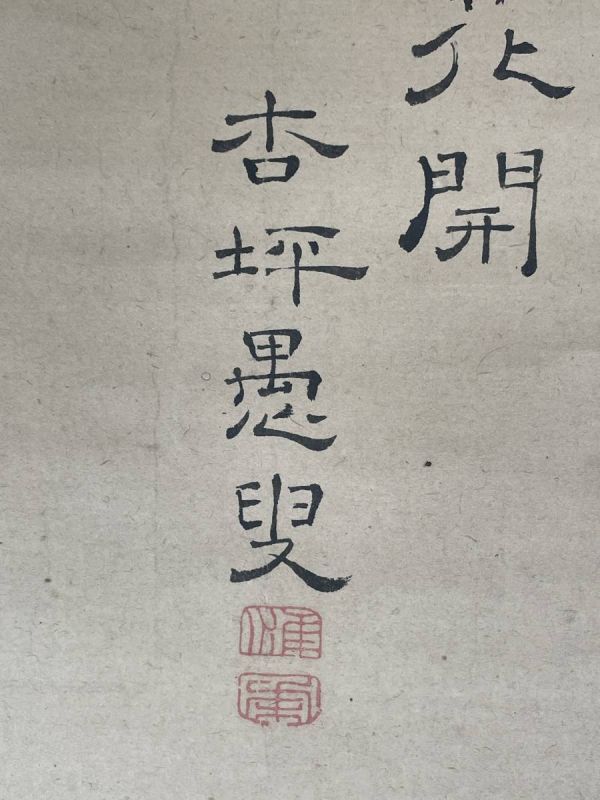 花開
杏坪愚叟